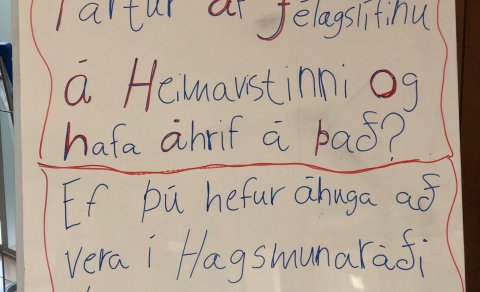 Partur af félagslífinu
á Heimavistinni og
hafa áhrif á það?
Ef þú hefur áhuga að
vera í Hagsmunaráði